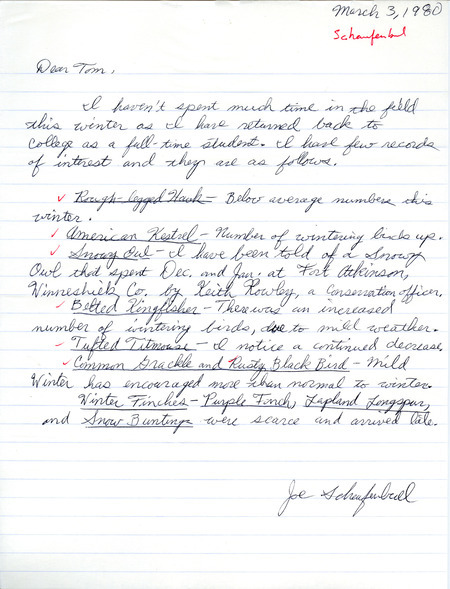 March 3, 1980
Schaufenbuel
Dear Tom,
I haven't spent much time in the field
this winter as I have returned back to
College as a full-time student. I have few records
of interest and they are as follows.
Rough-legged Hawk - Below average numbers this
winter.
American Kestrel - Number of wintering birds up.
Snowy Owl - I have been told of a Snowy
Owl that spent Dec. and Jan. at Fort Atkinson,
Winneshiek Co. by Keith Rowley, a Conservation officer.
Belted Kingfisher - There was an increased
number of wintering birds, due to mild weather.
Tufted Titmouse - I notice a continued decrease.
Common Grackle and Rusty Black Bird - Mild
Winter has encouraged more than normal to winter.
Winter Finches - Purple Finch, Lapland Longspur,
and Snow Bunting were scarce and arrived late.
Joe Schaufenbuel